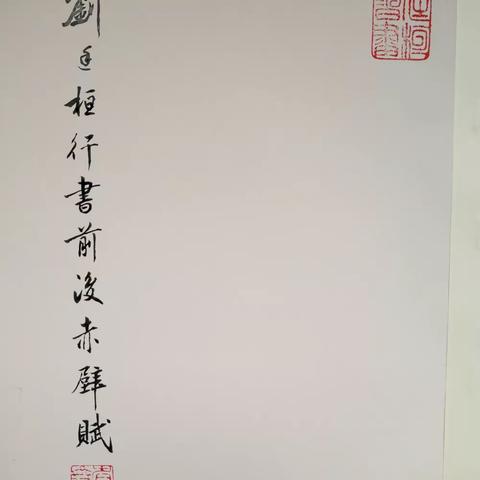 劉廷桓行書前後赤壁賦